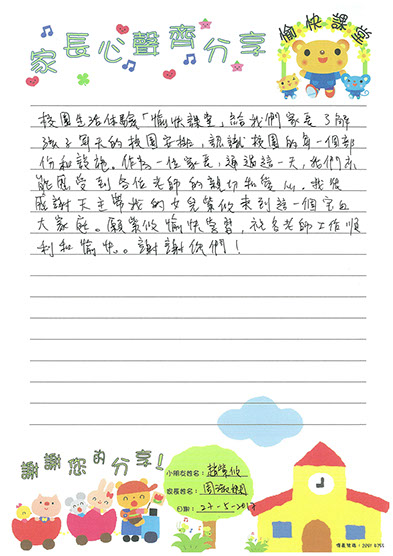 家長心聲齊分享
愉快課堂
校園生活体驗「愉快課堂」給我們家長了解
孩子每天的校園安排,認識校園的每一個部
份和設施。作為一位家長,通過這一天,我們亦
能感受到各位老師的親切和愛心。我很
感謝天主帶我的女兒
來到這一個宝血
大家庭。願
愉快學習,祝各老師工作順
利和愉快。謝謝你們!
謝謝您的分享!
小朋友姓名:
家長姓名:周
日期:27-5-2017